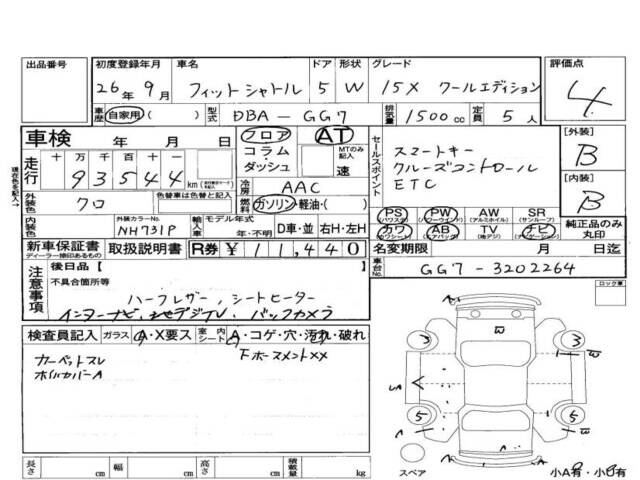 出品番号
初度登録年月
26年9月
車名
フィットシャトル
ドア
5
形状
W
グレード
15X クールエディション
評価点
4
車歴
自家用( )
型式
DBA-GG7
排気量
1500cc
定員
5人
車検
年 月 日
フロア
コラム
ダッシュ
AT
MTのみ記入
速
セールスポイント
スマートキー
クルーズコントロール
ETC
[外装]
B
[内装]
B
現在色を記入→
走行
十 万 千 百 十 一
93544
km
冷房
AAC
燃料
ガソリン・軽油・( )
外装色
クロ
色替車は色替と記入
内装色
外装カラーNo.
NH731P
輸入車
モデル年式
年・不明
D車・並
右H・左H
PS
(パワステ)
PW
(パワーウィンド)
AW
(アルミホイル)
SR
(サンルーフ)
カワ
(カワシート)
AB
(エアバック)
TV
(地デジ)
ナビ
(ナビゲーション)
純正品のみ丸印
新車保証書
ディーラー捺印あるもの
取扱説明書
R券
¥11,440
名変期限
月 日
車台No.
GG7-3202264
注意事項
後日品[ ]
不具合箇所等
ハーフレザー,シートヒーター
インターナビ,地デジTV,バックカメラ
ロック車
検査員記入
ガラス
A・X要ス
室内シート
A・コゲ・穴・汚れ・破れ
カーペットスレ
ホイルカバーA
下ホースメントXX
3
3
5
5
W
W
W
W
UA
A
A
A
スペア
小A有・小B有
長さ
cm
幅
cm
高さ
cm
積載量
kg